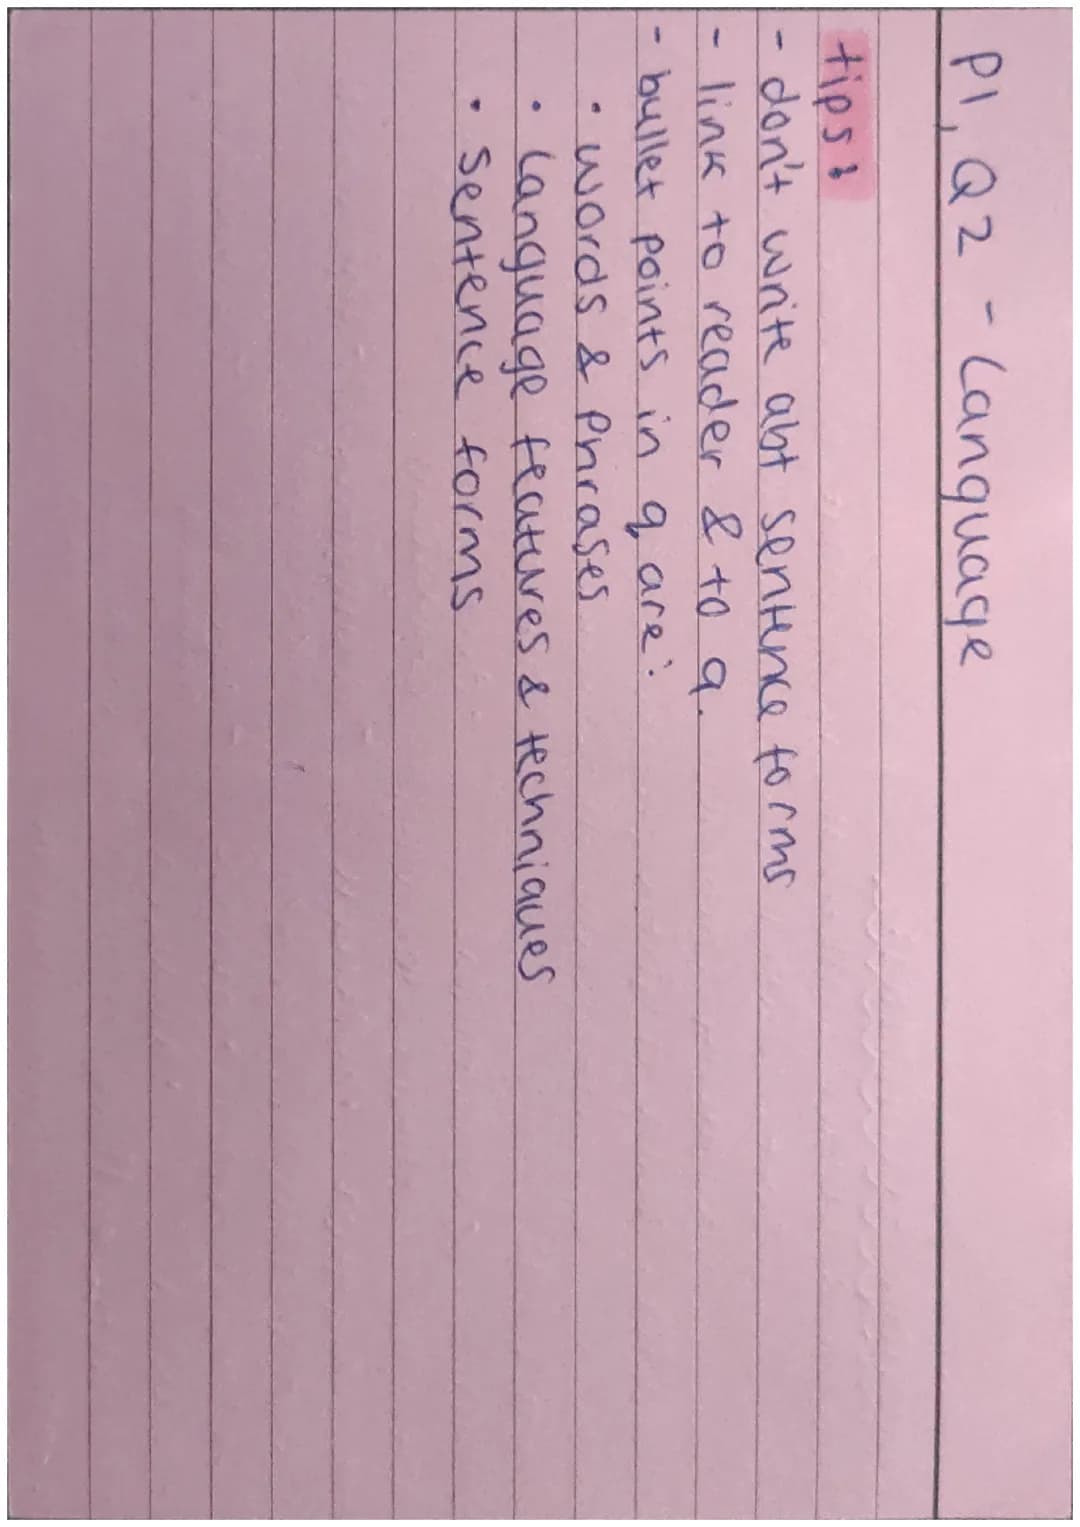 P1, Q2 - Language
tips:
- don't write abt sentence forms
- link to reader & to q.
- bullet points in q are:
• words & phrases
• Language features & techniques
• sentence forms